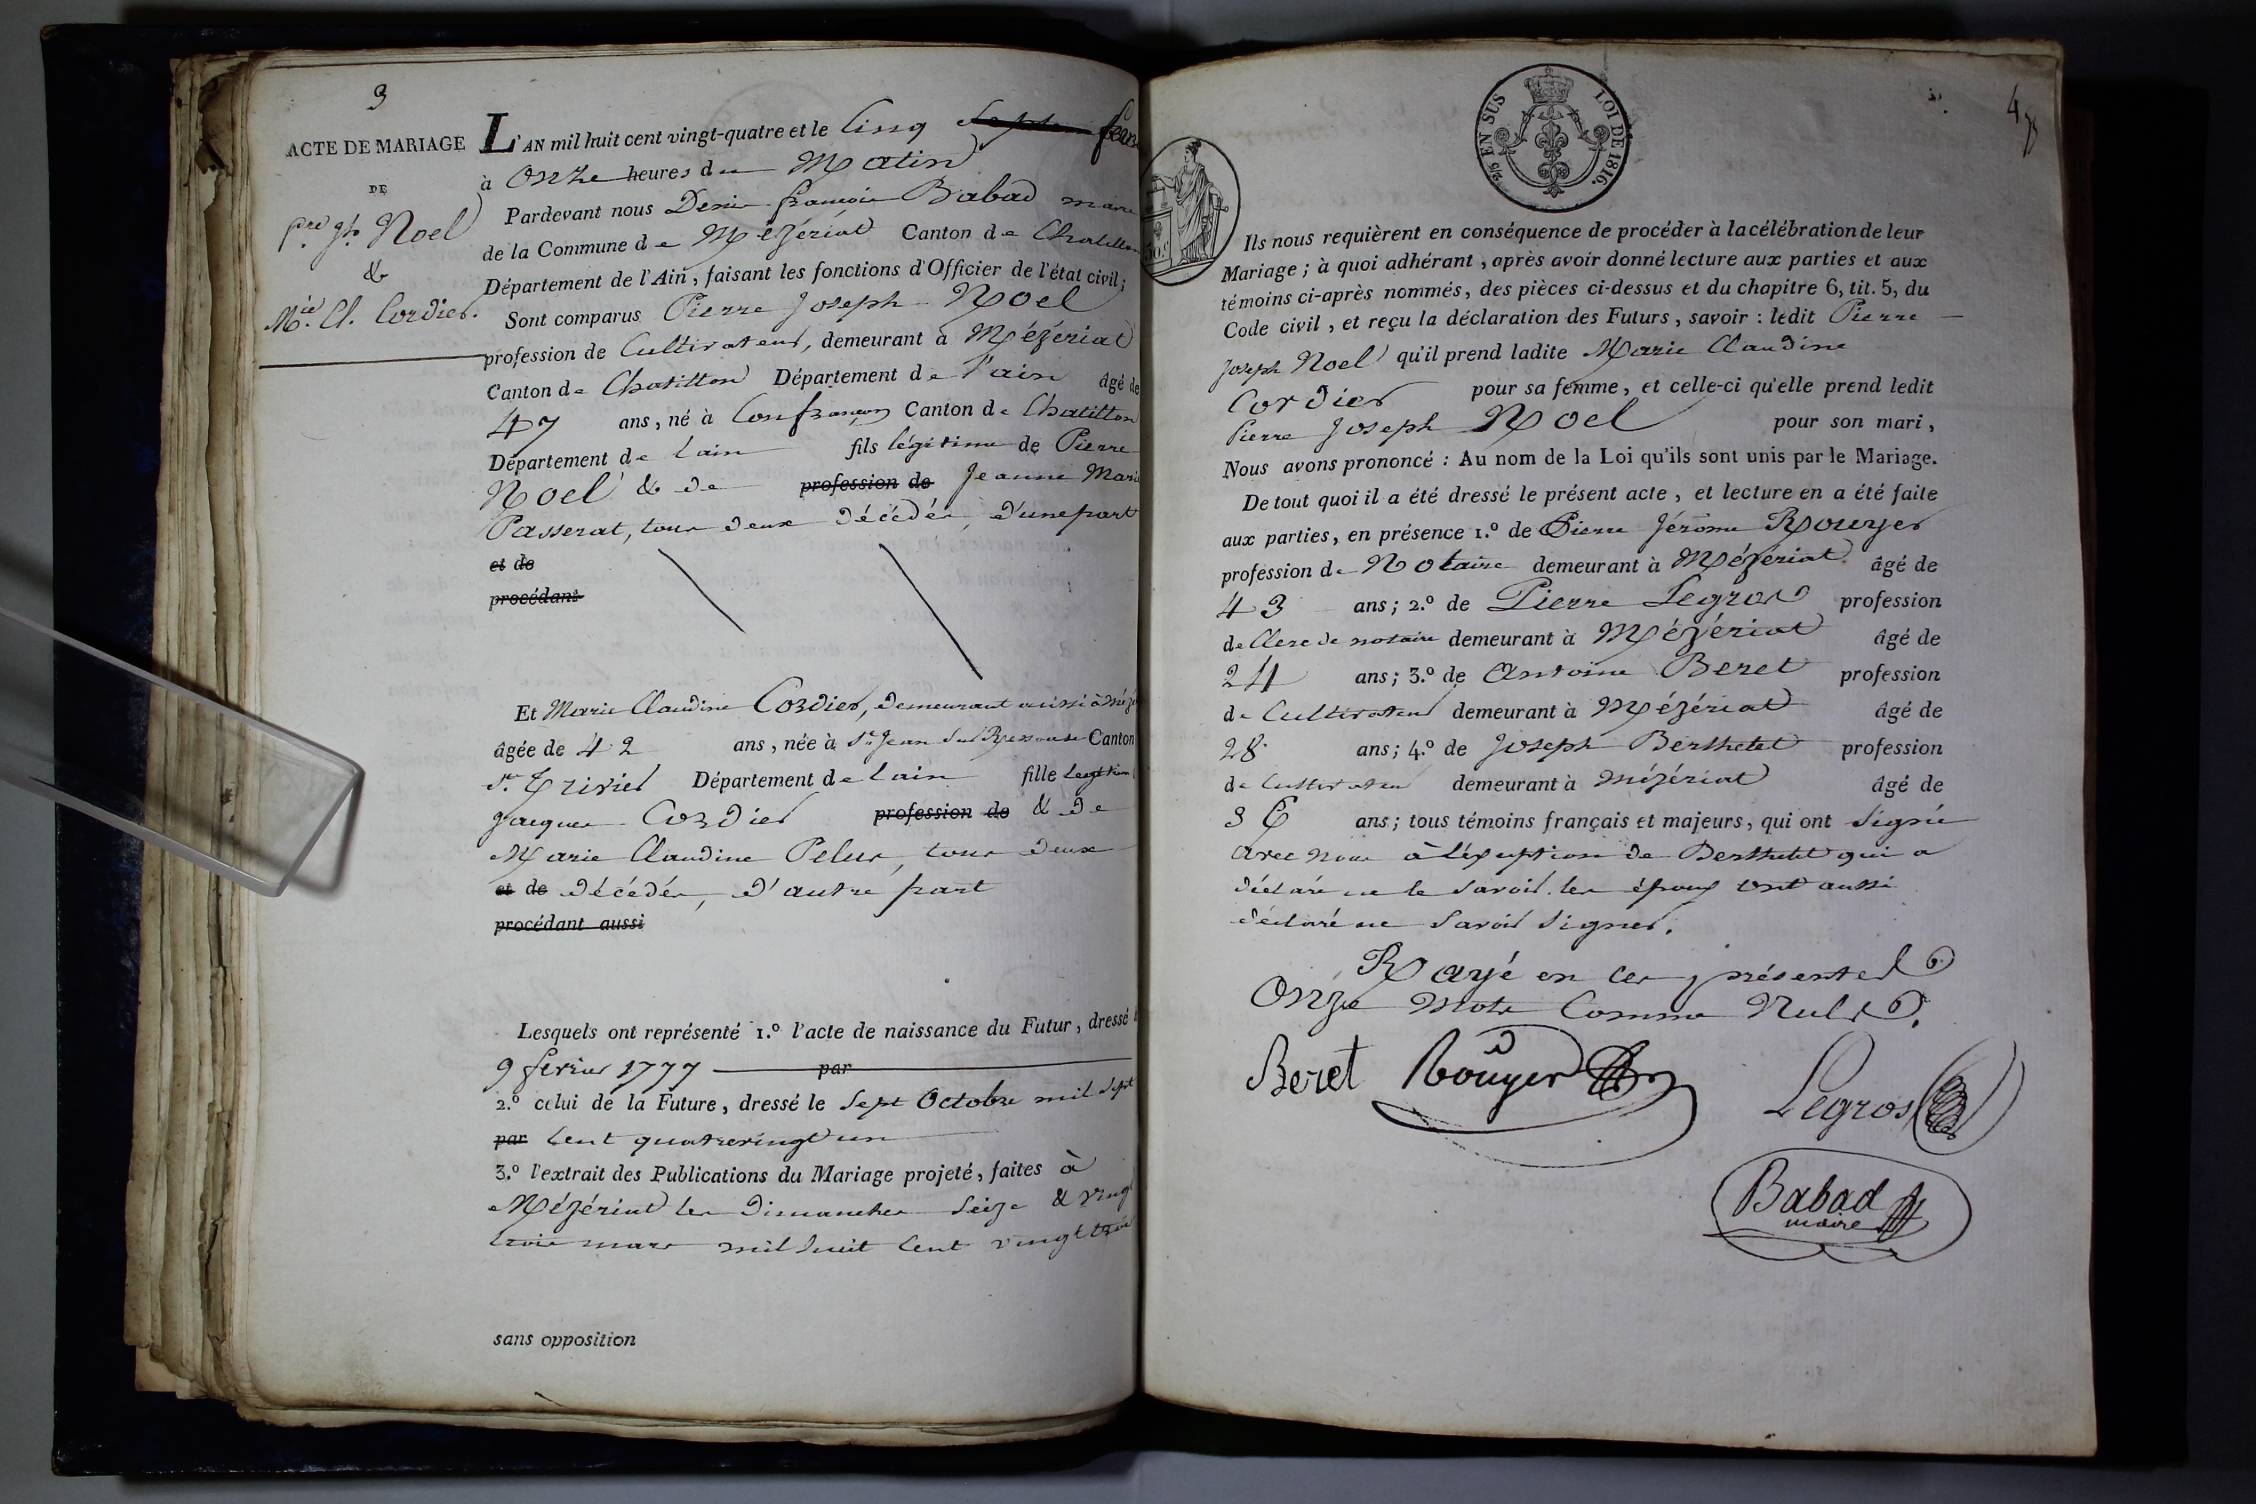 3
ACTE DE MARIAGE
DE
Pre Jh Noel
&
Mie Cl. Cordier.
L'AN mil huit cent vingt-quatre et le Cinq
à Onze heures du Matin
Pardevant nous Denis françois Babad maire
de la Commune de Mézériat Canton de Chatillon
Département de l'Ain, faisant les fonctions d'Officier de l'état civil;
Sont comparus Pierre Joseph Noel
profession de Cultivateur, demeurant à Mézériat
Canton de Chatillon Département de l'ain âgé de
47 ans, né à Confrançon Canton de Chatillon
Département de lain fils légitime de Pierre
Noel & de profession de Jeanne Marie
Passerat, tous deux décédés, d'une part
et de
procédant
Et Marie Claudine Cordier, demeurant aussi à
âgée de 42 ans, née à St Jean Sur Reyssouze Canton
St Trivier Département de lain fille legitime
Jacques Cordier profession de & de
Marie Claudine Pelus, tous deux
et de décédés, d'autre part
procédant aussi
Lesquels ont représenté 1.º l'acte de naissance du Futur, dressé
9 fevrier 1777 par
2.º celui de la Future, dressé le Sept Octobre mil Sept
par Cent quatrevingt un
3.º l'extrait des Publications du Mariage projeté, faites à
Mézériat les Dimanches Seize & vingt
trois mars mil huit Cent vingt trois
sans opposition
5/10 EN SUS LOI DE 1816.
4
Ils nous requièrent en conséquence de procéder à la célébration de leur
Mariage; à quoi adhérant, après avoir donné lecture aux parties et aux
témoins ci-après nommés, des pièces ci-dessus et du chapitre 6, tit. 5, du
Code civil, et reçu la déclaration des Futurs, savoir: ledit Pierre
Joseph Noel qu'il prend ladite Marie Claudine
Cordier pour sa femme, et celle-ci qu'elle prend ledit
Pierre Joseph Noel pour son mari,
Nous avons prononcé: Au nom de la Loi qu'ils sont unis par le Mariage.
De tout quoi il a été dressé le présent acte, et lecture en a été faite
aux parties, en présence 1.º de Pierre Jérôme Rouyer
profession de Notaire demeurant à Mézériat âgé de
43 ans; 2.º de Pierre Legros profession
de Clerc de notaire demeurant à Mézériat âgé de
24 ans; 3.º de Antoine Beret profession
de Cultivateur demeurant à Mézériat âgé de
28 ans; 4.º de Joseph Berthelet profession
de Cultivateur demeurant à Mézériat âgé de
36 ans; tous témoins français et majeurs, qui ont Signé
avec nous à l'éxeption de Berthelet qui a
déclaré ne le Savoir. les époux ont aussi
déclaré ne Savoir Signer.
Rayé en ces présentes
Onze mots Comme Nuls.
Beret Rouyer
Legros
Babad
maire